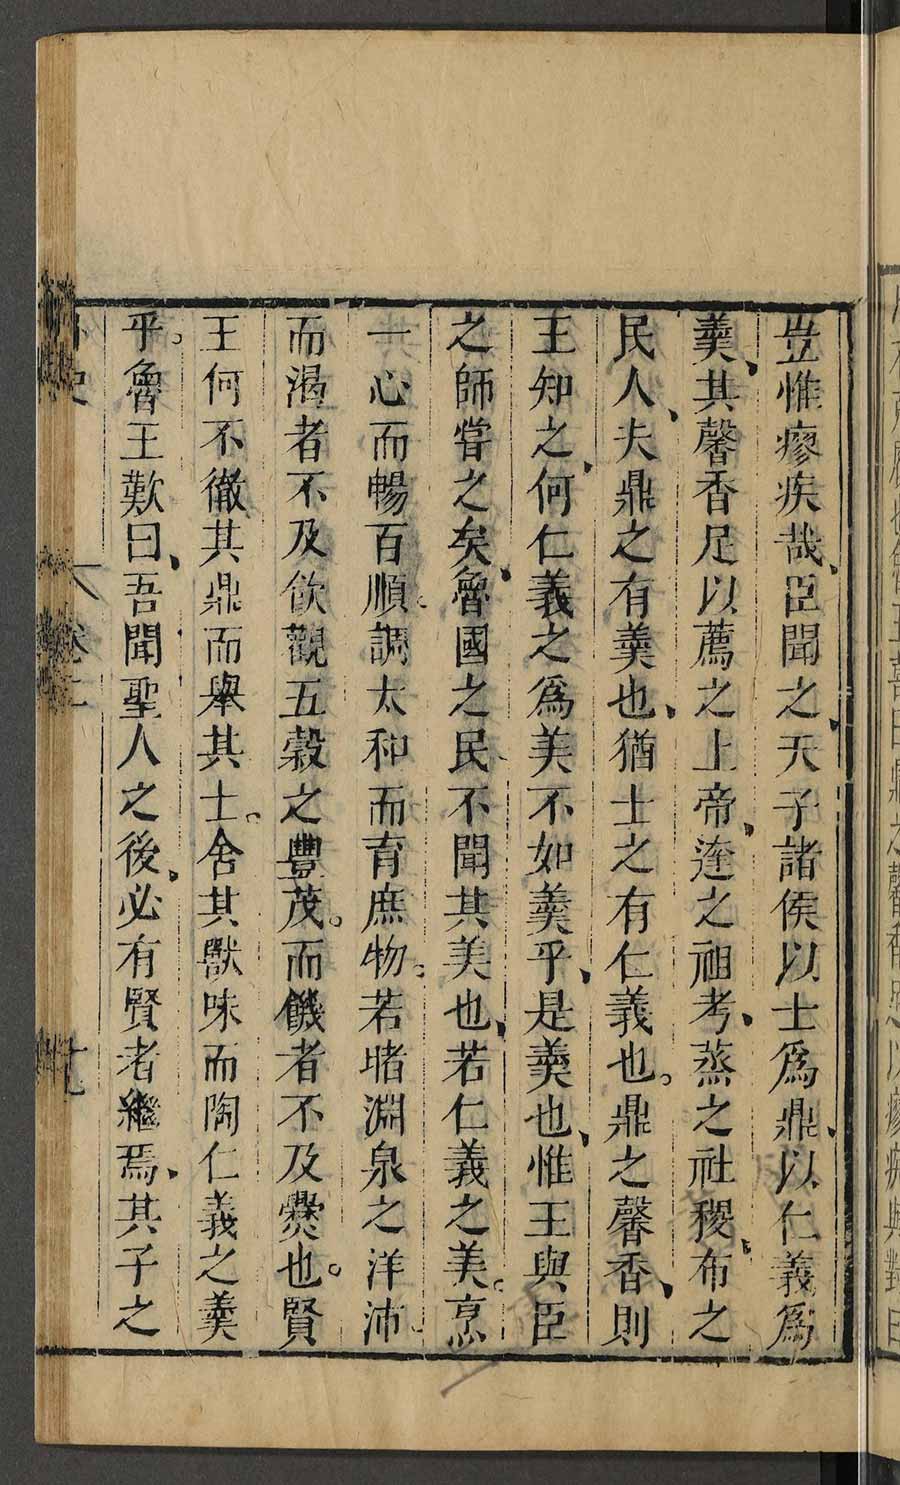 豈惟瘳疾哉臣聞之天子諸侯以士爲鼎以仁義爲
羹其馨香足以薦之上帝達之祖考蒸之社稷布之
民人夫鼎之有羹也猶士之有仁義也鼎之馨香則
王知之何仁義之爲美不如羹乎是羹也惟王與臣
之師嘗之矣魯國之民不聞其美也若仁義之美烹
一心而暢百順調太和而育庶物若睹淵泉之洋沛
而渴者不及飲觀五穀之豐茂而饑者不及爨也賢
王何不徹其鼎而舉其士舍其獸味而陶仁義之羹
乎魯王歎曰吾聞聖人之後必有賢者繼焉其子之